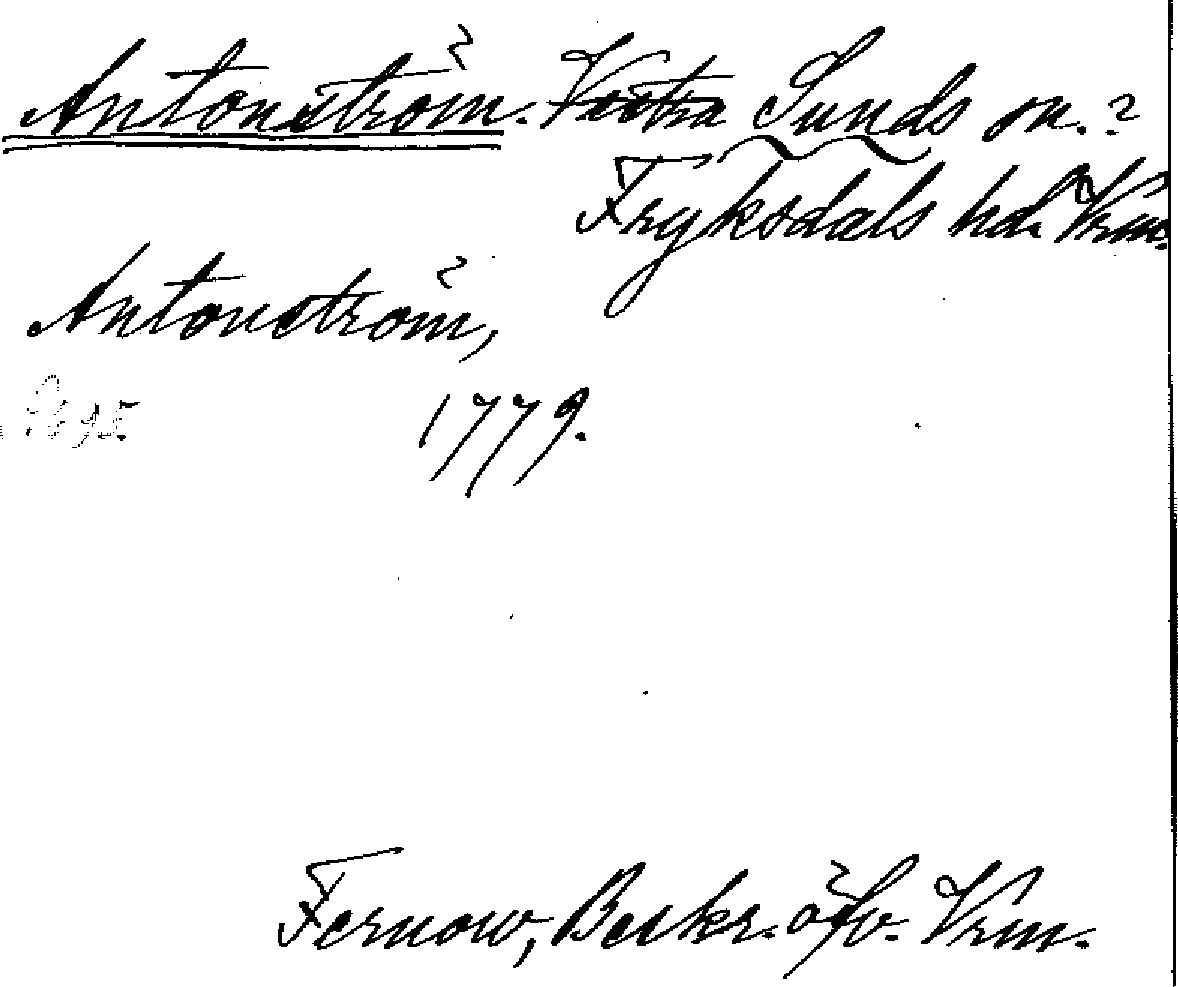 Antonström. Västra Sunds sn.?
Fryksdals hd. Vrm.
Antonström,
1779.
Fernow, Beskr. öfv. Vrm.